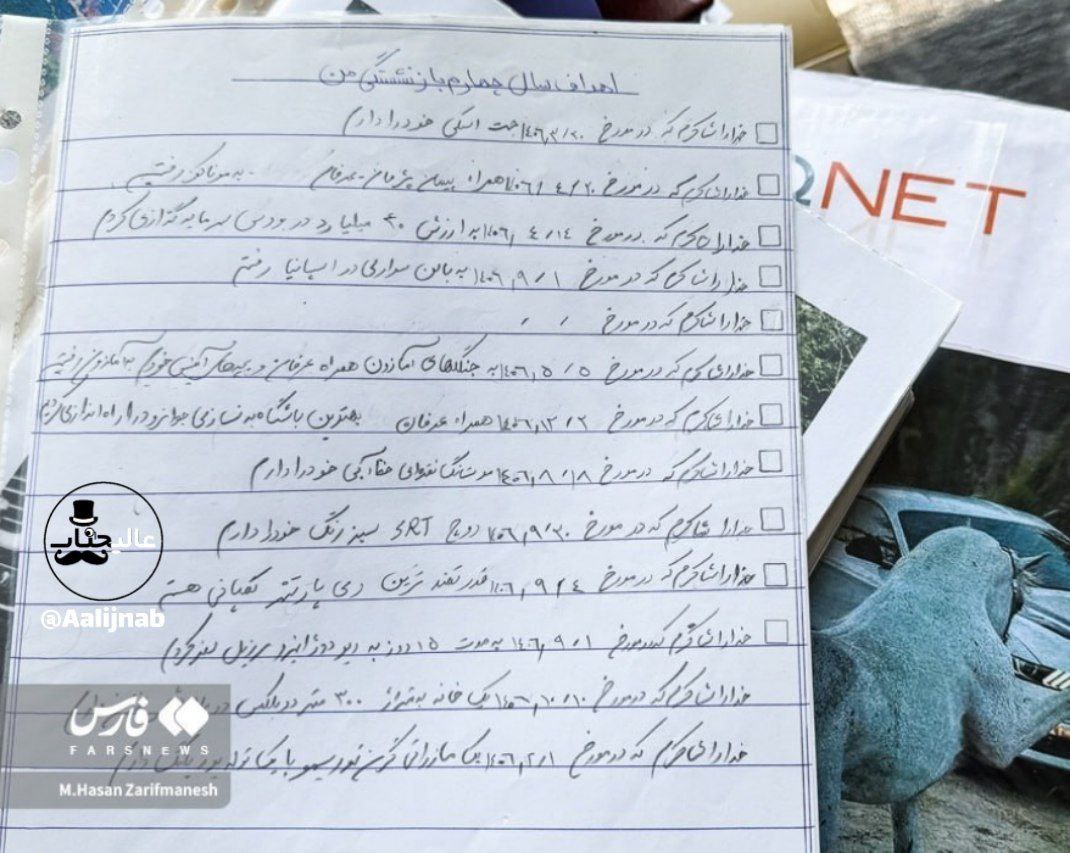 اهداف سال چهارم بازنشستگی من
خدارا شاکرم که در مورخ ۱۴۰۶/۳/۲۰ جت اسکی خود را دارم
خدارا شاکرم که در مورخ ۱۴۰۶/۴/۲۰ همراه پیمان پژمان - عرفان - به موناکو رفتیم
خدارا شاکرم که در مورخ ۱۴۰۶/۴/۱۴ به ارزش ۲۰ میلیارد در بورس سرمایه گذاری کردم
خدارا شاکرم که در مورخ ۱۴۰۶/۹/۱ به بالن سواری در اسپانیا رفتم
خدارا شاکرم که در مورخ / /
خدارا شاکرم که در مورخ ۱۴۰۶/۵/۵ به جنگلهای آمازون همراه عرفان و بچه‌های خودم به آمازون رفتیم
خدارا شاکرم که در مورخ ۱۴۰۶/۱۲/۲ همراه عرفان بهترین باشگاه بدنسازی جوانرود را راه اندازی کردیم
خدارا شاکرم که در مورخ ۱۴۰۶/۸/۱۸ موستانگ نقره‌ای خط آبی خود را دارم
خدارا شاکرم که در مورخ ۱۴۰۶/۹/۳۰ دوج SRT سبز رنگ خود را دارم
خدارا شاکرم که در مورخ ۱۴۰۶/۹/۴ قدرتمند ترین وی پارتنر کمپانی هستم
خدارا شاکرم که در مورخ ۱۴۰۶/۹/۱ به مدت ۱۵ روز به ریو دوژانیرو برزیل سفر کردم
خدارا شاکرم که در مورخ ۱۴۰۶/۱۰/۱۰ یک خانه به متراژ ۳۰۰ متر دوبلکس در
خدارا شاکرم که در مورخ ۱۴۰۶/۲/۱ یک مازراتی گرن توریسمو با
QNET
عالیجناب
@Aalijnab
فارس
FARSNEWS
M.Hasan Zarifmanesh